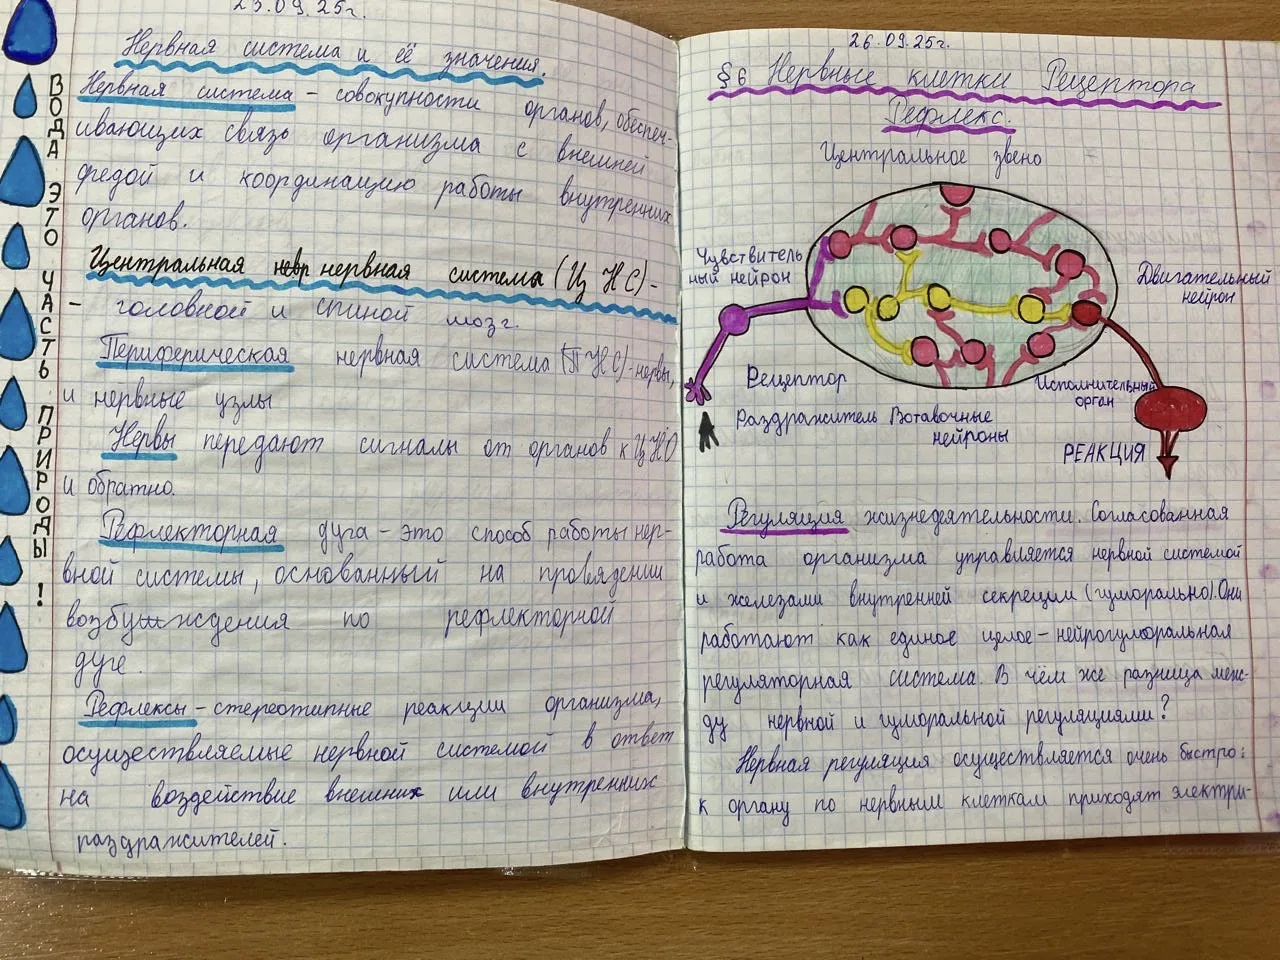 23.09.25г.
Нервная система и её значения.
Нервная система - совокупности органов, обеспеч-
ивающих связь организма с внешней
средой и координацию работы внутренних
органов.
Центральная невр нервная система (ЦНС) -
- головной и спиной мозг.
Периферическая нервная система (ПНС) - нервы,
и нервные узлы
Нервы передают сигналы от органов к ЦНО
и обратно.
Рефлекторная дуга - это способ работы нер-
вной системы, основанный на проведении
возбуждения по рефлекторной
дуге.
Рефлексы - стереотипные реакции организма,
осуществляемые нервной системой в ответ
на воздействие внешних или внутренних
раздражителей.
ВОДА ЭТО ЧАСТЬ ПРИРОДЫ!
26.09.25г.
§6 Нервные клетки Рецептора
Рефлекс.
Центральное звено
Чувствитель
ный нейрон
Двигательный
нейрон
Рецептор
Исполнительный
орган
Раздражитель
Вставочные
нейроны
РЕАКЦИЯ
Регуляция жизнедеятельности. Согласованная
работа организма управляется нервной системой
и железами внутренней секреции (гуморально). Они
работают как единое целое - нейрогуморальная
регуляторная система. В чём же разница меж-
ду нервной и гуморальной регуляциями?
Нервная регуляция осуществляется очень быстро:
к органу по нервным клеткам приходят электри-